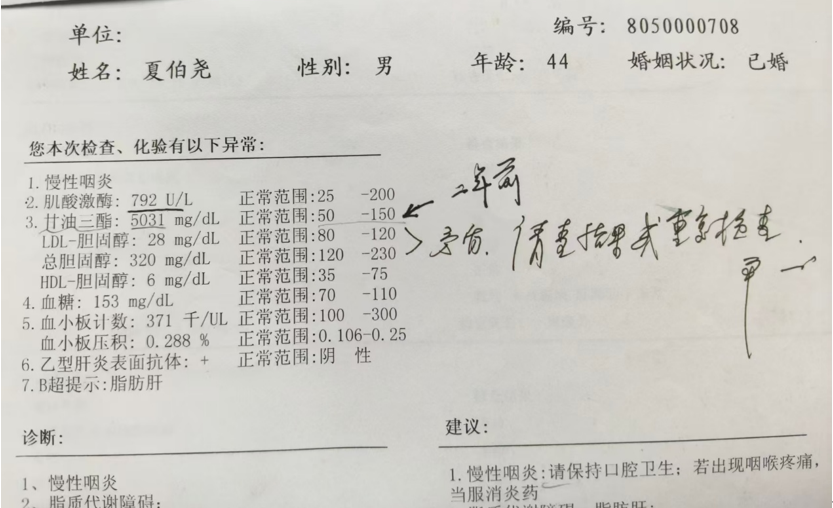 单位:
编号: 8050000708
姓名: 夏伯尧 性别: 男 年龄: 44 婚姻状况: 已婚
您本次检查、化验有以下异常:
1.慢性咽炎
2.肌酸激酶: 792 U/L 正常范围:25 -200
3.甘油三酯: 5031 mg/dL 正常范围:50 -150
LDL-胆固醇: 28 mg/dL 正常范围:80 -120
总胆固醇: 320 mg/dL 正常范围:120 -230
HDL-胆固醇: 6 mg/dL 正常范围:35 -75
4.血糖: 153 mg/dL 正常范围:70 -110
5.血小板计数: 371 千/UL 正常范围:100 -300
血小板压积: 0.288 % 正常范围:0.106-0.25
6.乙型肝炎表面抗体: + 正常范围:阴 性
7.B超提示:脂肪肝
二年前
矛盾. 请查结果或重新检查.
诊断:
1、慢性咽炎
2、脂质代谢障碍;
建议:
1.慢性咽炎:请保持口腔卫生; 若出现咽喉疼痛,
当服消炎药
脂质代谢障碍、脂肪肝: